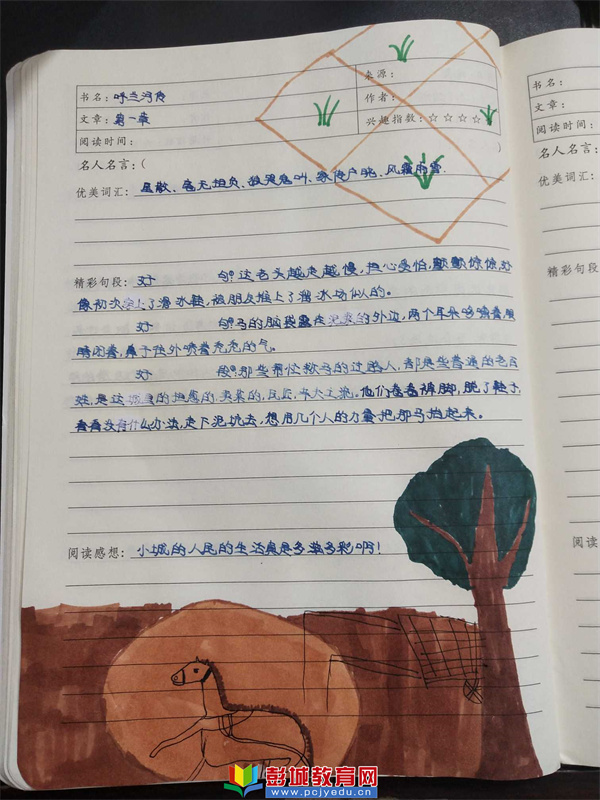 书名：呼兰河传
来源：
文章：第一章
作者：
阅读时间：
兴趣指数：☆☆☆☆
名人名言：（ ）
优美词汇：星散、毫无担负、狼哭鬼叫、家传户晓、风霜雨雪.
精彩句段：好 句：这老头越走越慢，担心受怕，颤颤惊惊，好
像初次穿上了滑冰鞋，被朋友推上了滑冰场似的。
好 句：马的脑袋露在泥浆的外边，两个耳朵哆嗦着，眼
睛闭着，鼻子往外喷着秃秃的气。
好 段：那些帮忙救马的过路人，都是些普通的老百
姓，是这城里的担葱的、卖菜的，瓦匠，车夫之流。他们卷卷裤脚，脱了鞋子，
看看没有什么办法，走下泥坑去，想用几个人的力量把那马抬起来。
阅读感想：小城的人民的生活真是多滋多彩啊！
书名：
文章：
阅读时间：
名人名言：
优美词汇：
精彩句
阅读
彭城教育网
www.pcjyedu.cn